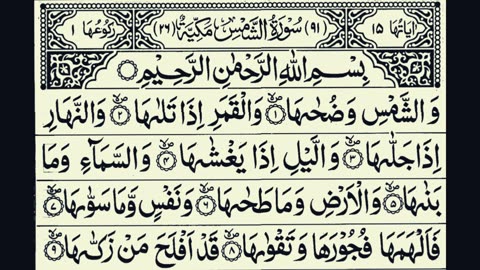 اٰيَاتُهَا ١٥ (٩١) سُوْرَةُ الشَّمْسِ مَكِّيَّةٌ (٢٦) رُكُوْعُهَا ١
بِسْمِ اللّٰهِ الرَّحْمٰنِ الرَّحِيْمِ
وَالشَّمْسِ وَضُحٰىهَا ۝١ وَالْقَمَرِ اِذَا تَلٰىهَا ۝٢ وَالنَّهَارِ
اِذَا جَلّٰىهَا ۝٣ وَالَّيْلِ اِذَا يَغْشٰىهَا ۝٤ وَالسَّمَآءِ وَمَا
بَنٰىهَا ۝٥ وَالْاَرْضِ وَمَا طَحٰىهَا ۝٦ وَنَفْسٍ وَّمَا سَوّٰىهَا ۝٧
فَاَلْهَمَهَا فُجُوْرَهَا وَتَقْوٰىهَا ۝٨ قَدْ اَفْلَحَ مَنْ زَكّٰىهَا ۝٩